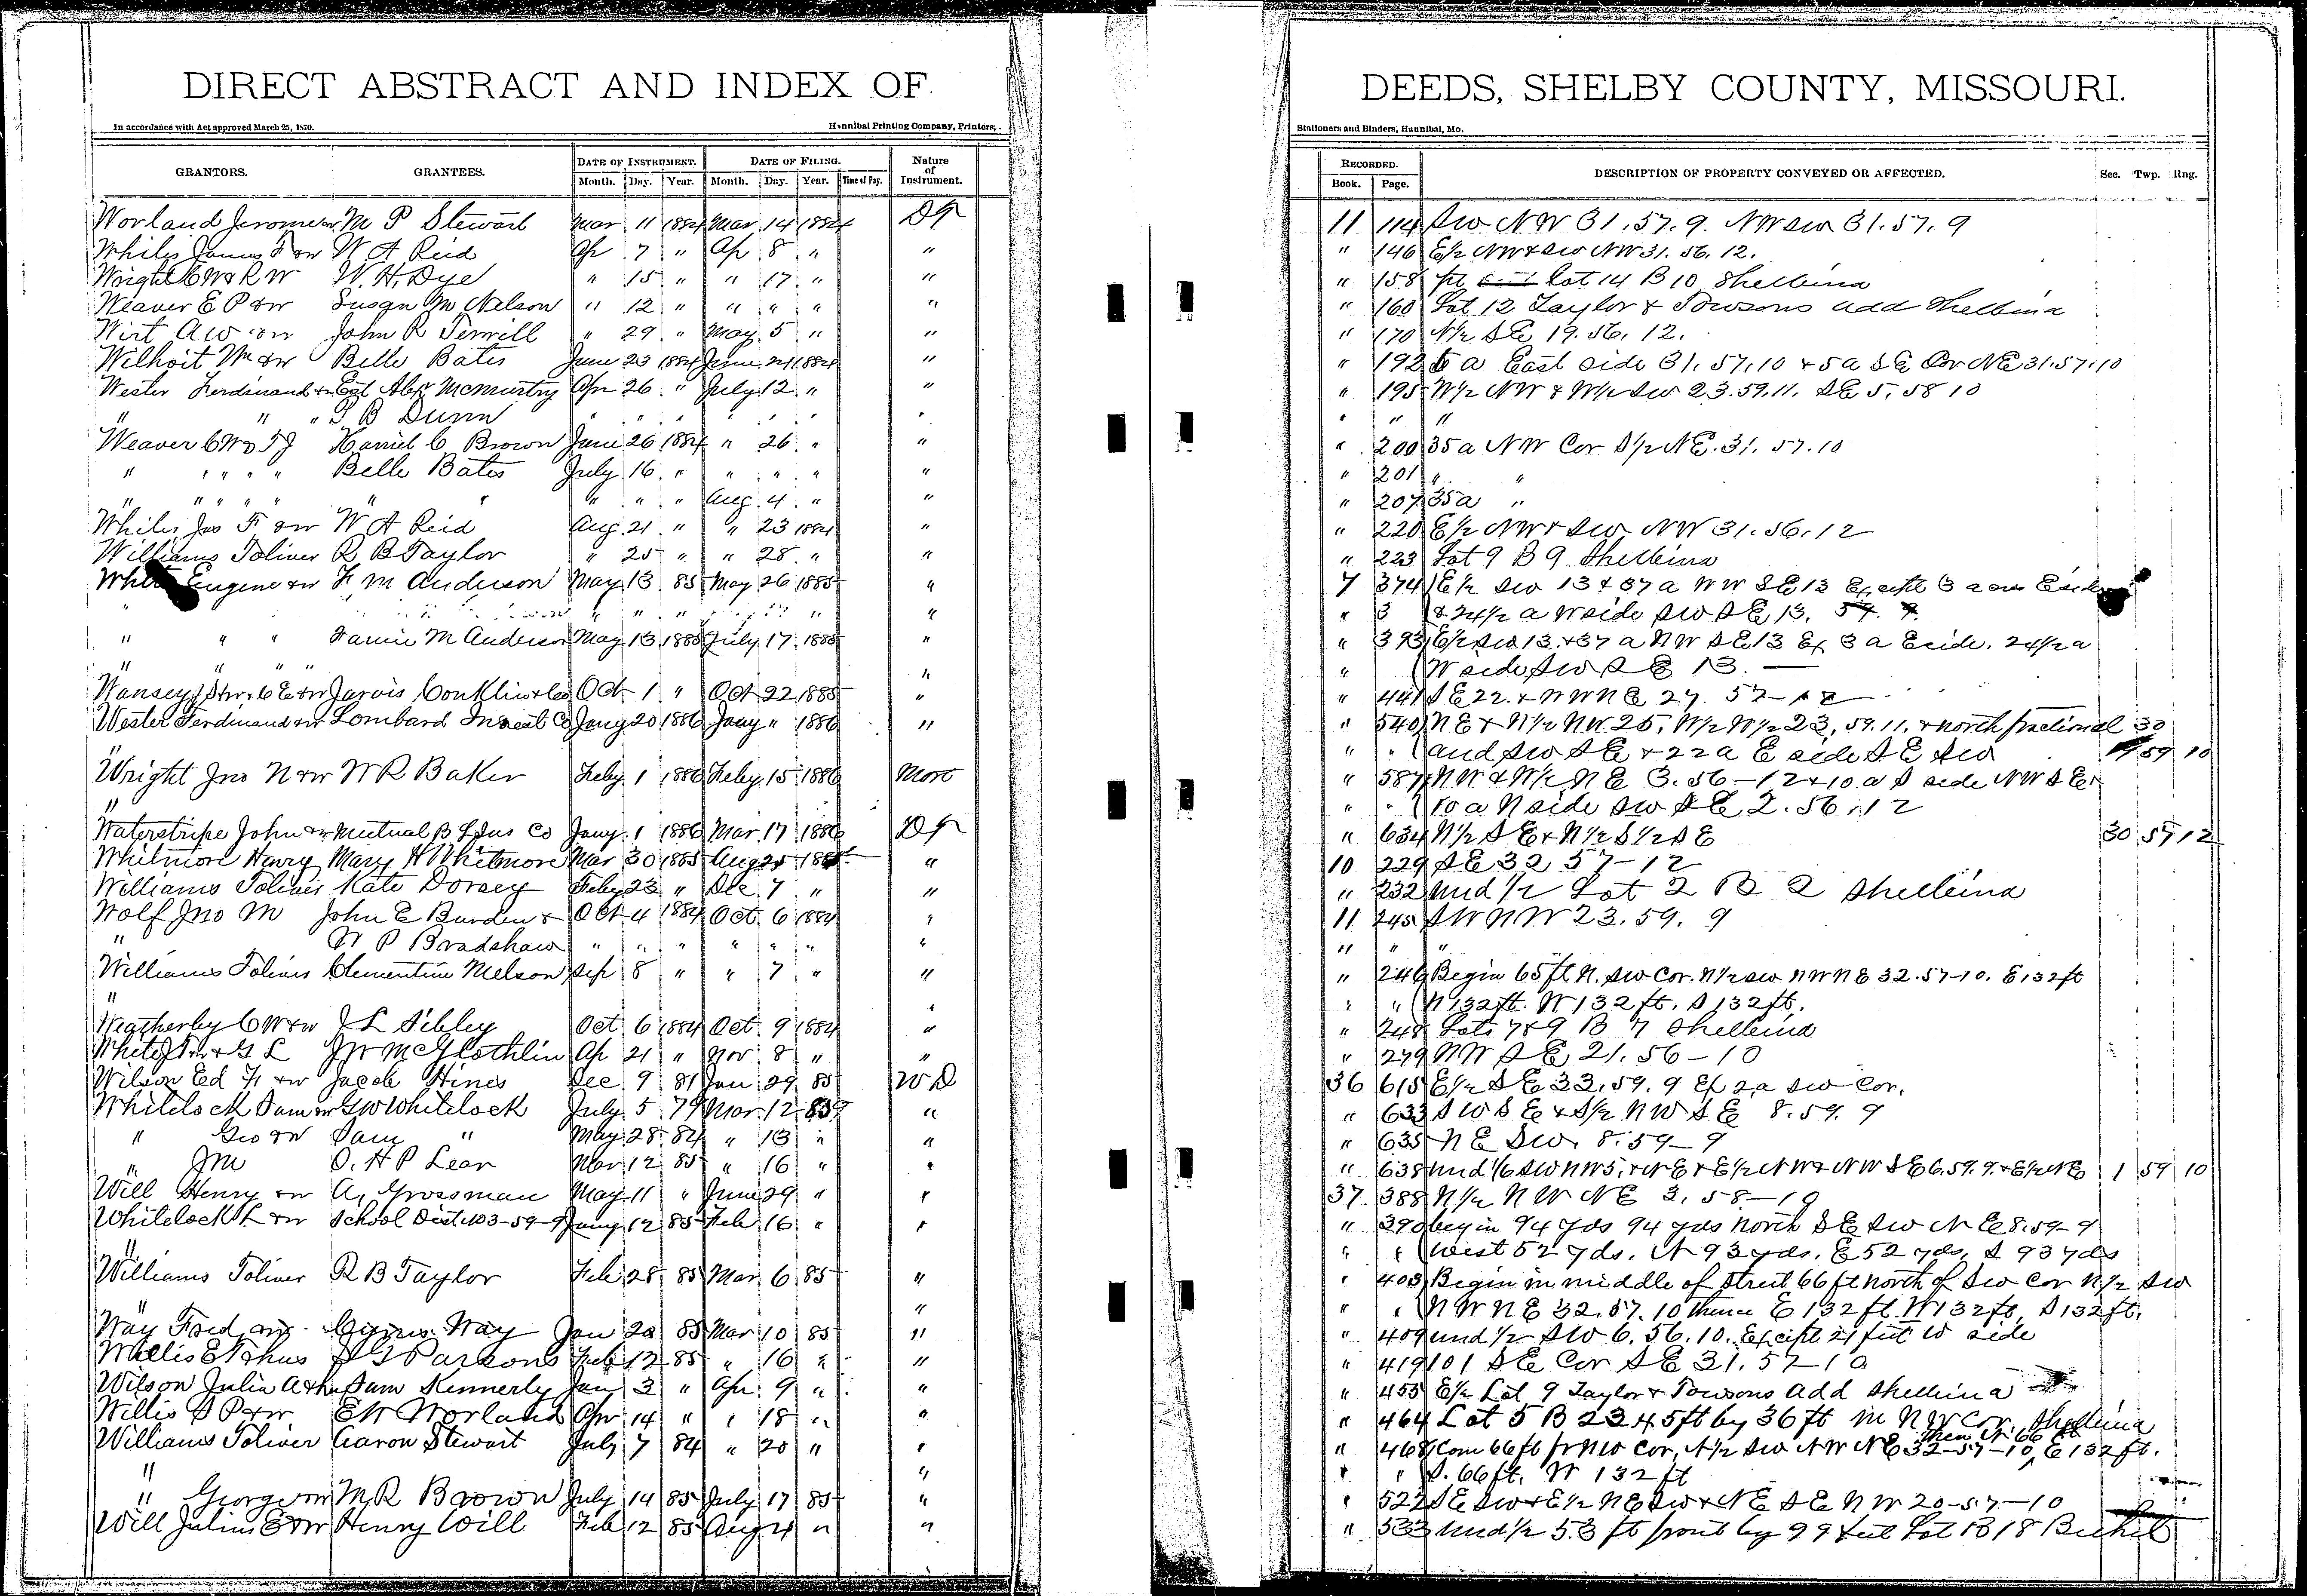 DIRECT ABSTRACT AND INDEX OF
DEEDS, SHELBY COUNTY, MISSOURI.
In accordance with Act approved March 25, 1870. Hannibal Printing Company, Printers,
Stationers and Binders, Hannibal, Mo.
GRANTORS. GRANTEES. DATE OF INSTRUMENT. DATE OF FILING. Nature of Instrument.
Month. Day. Year. Month. Day. Year. Time of Day.
RECORDED. DESCRIPTION OF PROPERTY CONVEYED OR AFFECTED. Sec. Twp. Rng.
Book. Page.
Worland Jerome &w M P Stewart Mar 11 1884 Mar 14 1884 DT 11 114 SW NW 31.57.9. NW SW 31.57.9
Whiles James F &w W A Reid Ap 7 " Ap 8 " " " 146 E½ NW & SW NW 31.56.12.
Wright C W & R W W. H. Dye " 15 " " 17 " " " 158 pt Lot 14 B 10 Shelbina
Weaver E P &w Susan M Nelson " 12 " " " " " " 160 Lot 12 Taylor & Towsons add Shelbina
Wirt A W &w John R Terrill " 29 " May 5 " " " 170 N½ SE 19.56.12.
Wilhoit Wm &w Belle Bates June 23 1884 June 24 1884 " " 192 5 a East side 31.57.10 & 5a SE Cor NE 31.57.10
Wester Ferdinand &w Est Alex McMurtry Apr 26 " July 12 " " " 195 W½ NW & W½ SW 23.59.11. SE 5.58 10
" " " S B Dunn " " " " " " " " " "
Weaver C W & T J Harriet C Brown June 26 1884 " 26 " " " 200 35a NW Cor S½ NE.31.57.10
" " " " " Belle Bates July 16 " " " " " " 201 " "
" " " " " " " " " " Aug 4 " " " 207 35a "
Whiles Jas F &w W A Reid Aug 21 " " 23 1884 " " 220 E½ NW & SW NW 31.56.12
Williams Toliver R B Taylor " 25 " " 28 " " " 223 Lot 9 B 9 Shelbina
White Eugene &w F. M Anderson May 13 85 May 26 1885 " 7 374 E½ SW 13 & 37 a NW SE 13 Except 3 a on Eside
" " " " " " " " " 3 & 24½ a W side SW SE 13.
" " " Fannie M Anderson May 13 1885 July 17 1885 " " 393 E½ SW 13 & 37 a NW SE 13 Ex 3 a E side. 24½ a
" " " " " " W side SW SE 13. —
Wansey C E &w Jarvis Conklin & Co Oct 1 " Oct 22 1885 " " 441 SE 22. & NW NE 27. 57–12
Wester Ferdinand &w Lombard Invest Co Jany 20 1886 Jany " 1886 " " 540 NE & N½ NW 25, W½ W½ 23, 59.11, & north fractional 30
" " " and SW SE & 22 a E side SE SW 59 10
Wright Jno N &w W R Baker Feby 1 1886 Feby 15 1886 Mort " 587 NW & W½ NE 3.56–12 & 10 a S side NW SE &
" " " 10 a N side SW SE 2.56.12
Waterstripe John &w Mutual B L Ins Co Jany. 1 1886 Mar 17 1886 DT " 634 N½ SE & N½ S½ SE 30 57 12
Whitmore Henry Mary H Whitmore Mar 30 1885 Aug 25 1885 " 10 229 SE 32 57–12
Williams Toliver Kate Dorsey Feby 23 " Dec 7 " " " 232 und ½ Lot 2 B 2 Shelbina
Wolf Jno M John E Burden & Oct 4 1884 Oct 6 1884 " 11 245 SW NW 23.59.9
" W P Bradshaw " " " " " " " " " "
Williams Toliver Clementine Melson Sep 8 " " 7 " " " 246 Begin 65 ft N. SW Cor. N½ SW NW NE 32.57–10. E 132 ft
" " " " N 132 ft. W 132 ft, S 132 ft.
Weatherby C W &w J L Sibley Oct 6 1884 Oct 9 1884 " " 248 Lots 7 & 9 B 7 Shelbina
White G L J W McGlothlin Ap 21 " Nov 8 " " " 279 NW SE 21.56–10
Wilson Ed F &w Jacob Hines Dec 9 81 Jan 29 85 WD 36 615 E½ SE 33.59.9 Ex 2a SW Cor.
Whitelock Sam &w G W Whitelock July 5 79 Mar 12 85 " " 633 SW SE & S½ NW SE 8.59.9
" Geo &w Sam " May 28 84 " 13 " " " 635 NE SW. 8.59–9
" J M O. H P Lear Mar 12 85 " 16 " " " 638 und 1/6 SW NW 5, & NE & E½ NW & NW SE 6.59.9. & E½ NE 1 59 10
Will Henry &w A. Grossman May 11 " June 29 " " 37 388 N½ NW NE 3.58–10
Whitelock L &w School Dist No 3–59–9 Jany 12 85 Feb 16 " " " 390 begin 94 yds 94 yds north SE SW NE 8.59–9
" " " West 52 yds. N 93 yds. E 52 yds, S 93 yds
Williams Toliver R B Taylor Feb 28 85 Mar 6 85 " " 403 Begin in middle of street 66 ft north of SW Cor N½ SW
" " " " NW NE 32.57.10 thence E 132 ft W 132 ft, S 132 ft.
Way Fred &w Cyrus Way Jan 20 85 Mar 10 85 " " 409 und ½ SW 6.56.10. Except 21 feet W side
Willis E T & hus J G Parsons Feb 12 85 " 16 " " " 419 101 SE Cor SE 31.57–10
Wilson Julia A & hu Sam Kennerly Jan 3 " Apr 9 " " " 455 E½ Lot 9 Taylor & Towsons add Shelbina
Willis S P &w. E W Worland Apr 14 " " 18 " " " 464 Lot 5 B 23 45 ft by 36 ft in NW Cor. Shelbina
Williams Toliver Aaron Stewart July 7 84 " 20 " " " 468 Com 66 ft fr NW Cor, N½ SW NW NE 32–57–10, then N 66 ft E 132 ft.
" " " " S. 66 ft, W 132 ft
" George &w M. R Brown July 14 85 July 17 85 " " 522 SE SW & E½ NE SW & NE SE NW 20–57–10
Will Julius E &w Henry Will Feb 12 85 Aug 4 " " " 533 und ½ 53 ft front by 99 feet Lot B 18 Bethel